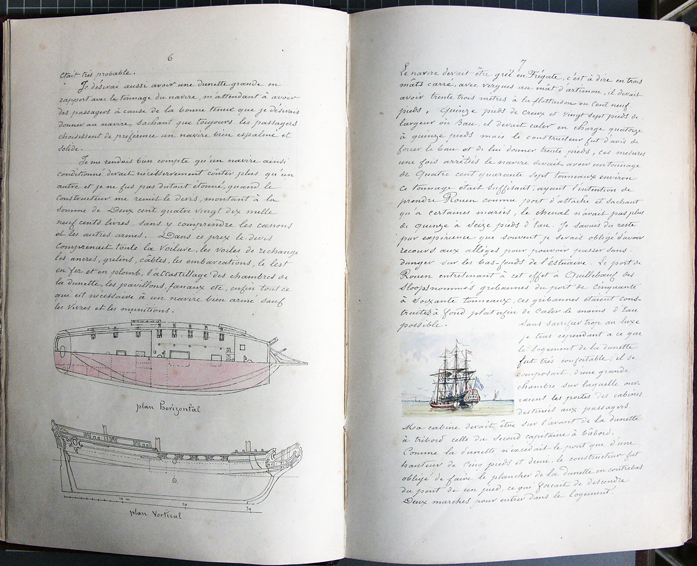 6
était très probable.
Je désirais aussi avoir une dunette grande en
rapport avec le tonnage du navire, m'attendant à avoir
des passagers à cause de la bonne tenue que je désirais
donner au navire, sachant que toujours les passagers
choisissent de préférence un navire bien espalmé et
solide.
Je me rendais bien compte qu'un navire ainsi
conditionné devait nécessairement coûter plus qu'un
autre et je ne fus pas du tout étonné, quand le
constructeur me remit le devis, montant à la
somme de Deux cent quatre vingt dix mille
neuf cents livres, sans y comprendre les canons
et les autres armes. Dans ce prix le devis
comprenait toute la voilure, les voiles de rechange
les ancres, grelins, câbles, les embarcations, le lest
en fer et en plomb, l'accastillage des chambres de
la dunette, les pavillons, fanaux etc, enfin tout ce
qui est nécessaire à un navire bien armé sauf
les vivres et les munitions.
plan Horizontal
plan Vertical
7
Le navire devait être gréé en Frégate, c'est à dire en trois
mâts carré, avec vergues au mât d'artimon, il devait
avoir trente trois mètres à la flottaison ou cent neuf
pieds. Quinze pieds de creux et vingt sept pieds de
largeur au Bau, et devait caler en charge quatorze
à quinze pieds mais le constructeur fut d'avis de
forcer le bau et de lui donner trente pieds, ces mesures
une fois arrêtées le navire devait avoir un tonnage
de Quatre cent quarante sept tonneaux environ
ce tonnage était suffisant, ayant l'intention de
prendre Rouen comme port d'attache et sachant
qu'à certaines marées, le chenal n'avait pas plus
de quinze à seize pieds d'eau. Je savais du reste
par expérience que souvent je serais obligé d'avoir
recours aux allèges pour pouvoir passer sans
danger sur les bas-fonds de l'estuaire. Le port de
Rouen entretenant à cet effet à Quilleboeuf des
Sloops nommés gribannes du port de cinquante
à soixante tonneaux, ces gribannes étaient cons-
truites à fond plat afin de caler le moins d'eau
possible.
Sans sacrifier trop au luxe
je tins cependant à ce que
le logement de la dunette
fut très confortable, il se
composait, d'une grande
chambre sur laquelle ouv-
raient les portes des cabines
destinées aux passagers
Ma cabine devait être sur l'avant de la dunette
à tribord celle du second capitaine à bâbord.
Comme la dunette n'excédait le pont que d'une
hauteur de cinq pieds et demi, le constructeur fut
obligé de faire le plancher de la dunette en contrebas
du pont de un pied ce qui forçait de descendre
Deux marches pour entrer dans le logement.